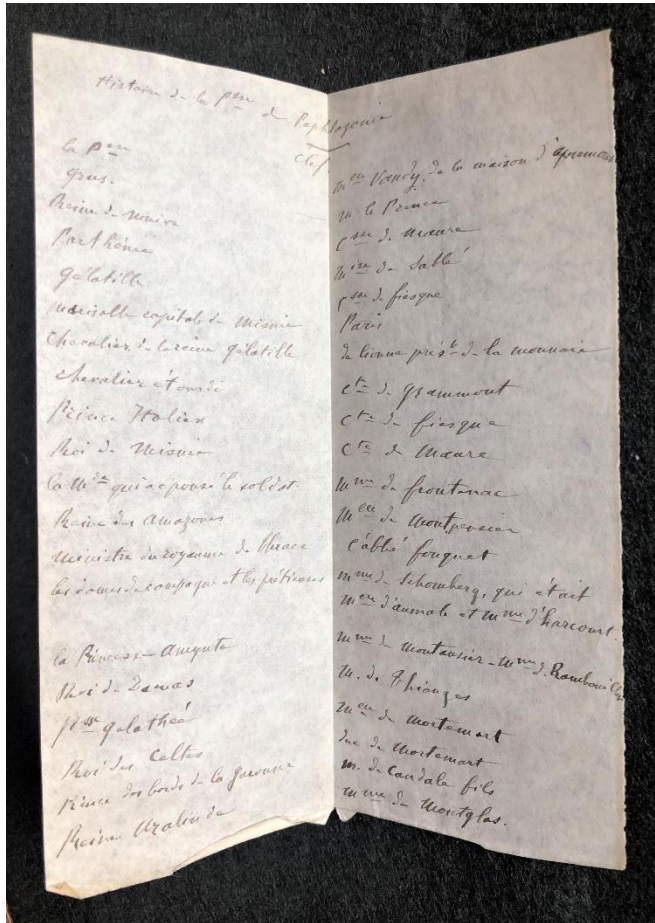 Histoire de la Psse de Paphlagonie
Clef.
la Psse
Cyrus.
Reine de Misnie
Parthénie
Gélatille
capitale de Misnie
Chevalier de la reine Gélatille
Chevalier étourdi
Prince Italien
Roi de Misnie
la Mise qui a épousé le soldat
Reine des Amazones
Ministre du royaume de Thrace
les dames de campagne et les prétieuses
la Princesse Amynte
Roi de Damas
Psse Galathée
Roi des Celtes
Prince des bords de la Garonne
Reine Uralinde
Melle Vandy, de la maison d'Apremont
M. le Prince
Csse de Maure
Mise de Sablé
Csse de fiesque
Paris
de lionne prést de la monnaie
Cte de Grammont
Cte de fiesque
Cte de Maure
Mme de frontenac
Melle de Montpensier
l'abbé fouquet
Mme de Schomberg, qui était
Melle d'aumale et Mme d'harcourt.
Mme de Montausier - Mme de Rambouillet
M. de Thianges
Melle de Mortemart
duc de Mortemart
M. de Candale fils
Mme de Montglas.